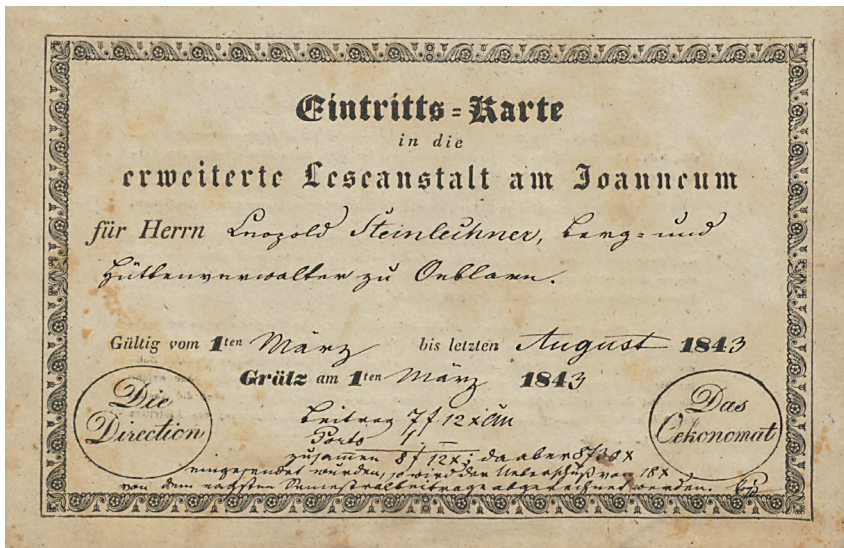 Eintritts=Karte
in die
erweiterte Leseanstalt am Joanneum
für Herrn Leopold Steinlechner, Berg= und
Hüttenverwalter zu Oeblarn.
Gültig vom 1ten März bis letzten August 1843
Grätz am 1ten März 1843
Die
Direction
Das
Oekonomat
Beitrag 7 f 12 x CM
Porto 1 " —
zusammen 8 f 12 x; da aber 8 f 30 x
eingesendet wurden, so wird der Ueberschuß von 18 x
von dem nächsten Semestralbeitrage abgerechnet werden.